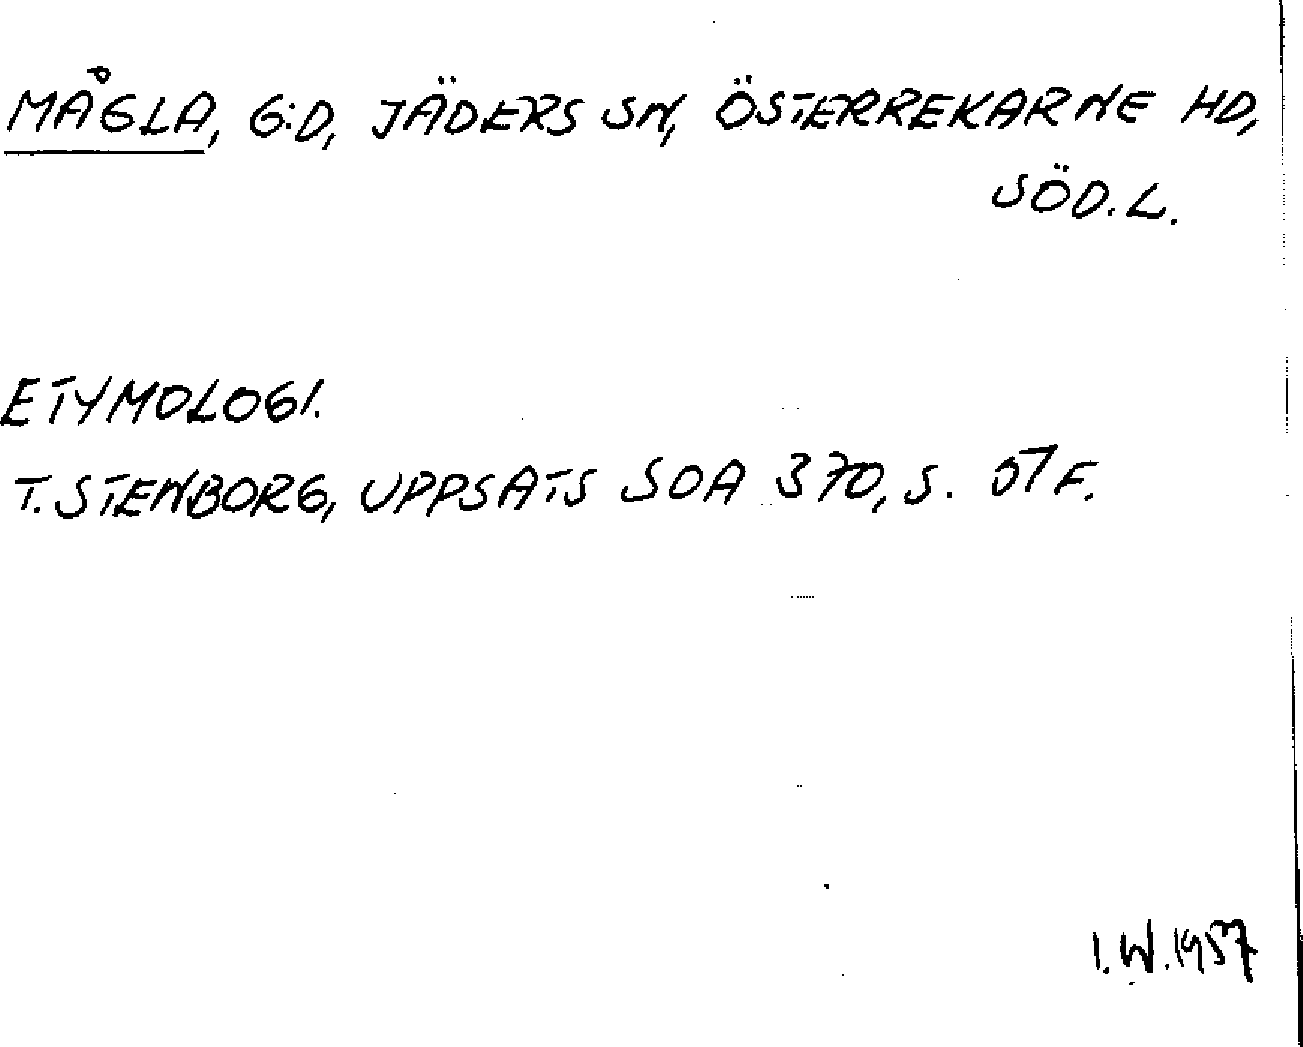 MÅGLA, G:D, JÄDERS SN, ÖSTERREKARNE HD,
SÖD.L.
ETYMOLOGI.
T. STENBORG, UPPSATS SOA 370, S. 57 F.
I.W.1957